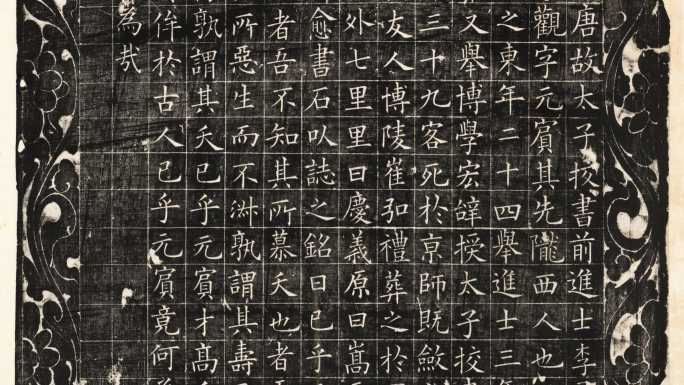 唐故太子挍書前進士李
觀字元賓其先隴西人也
之東年二十四舉進士三
又舉博學宏辝授太子挍
三十九客死於京師既斂
友人博陵崔弘禮葬之於
外七里里曰慶義原曰嵩
愈書石以誌之銘曰已乎
者吾不知其所慕夭也者
所惡生而不淑孰謂其壽
孰謂其夭已乎元賓才髙
侔於古人已乎元賓竟何
為哉